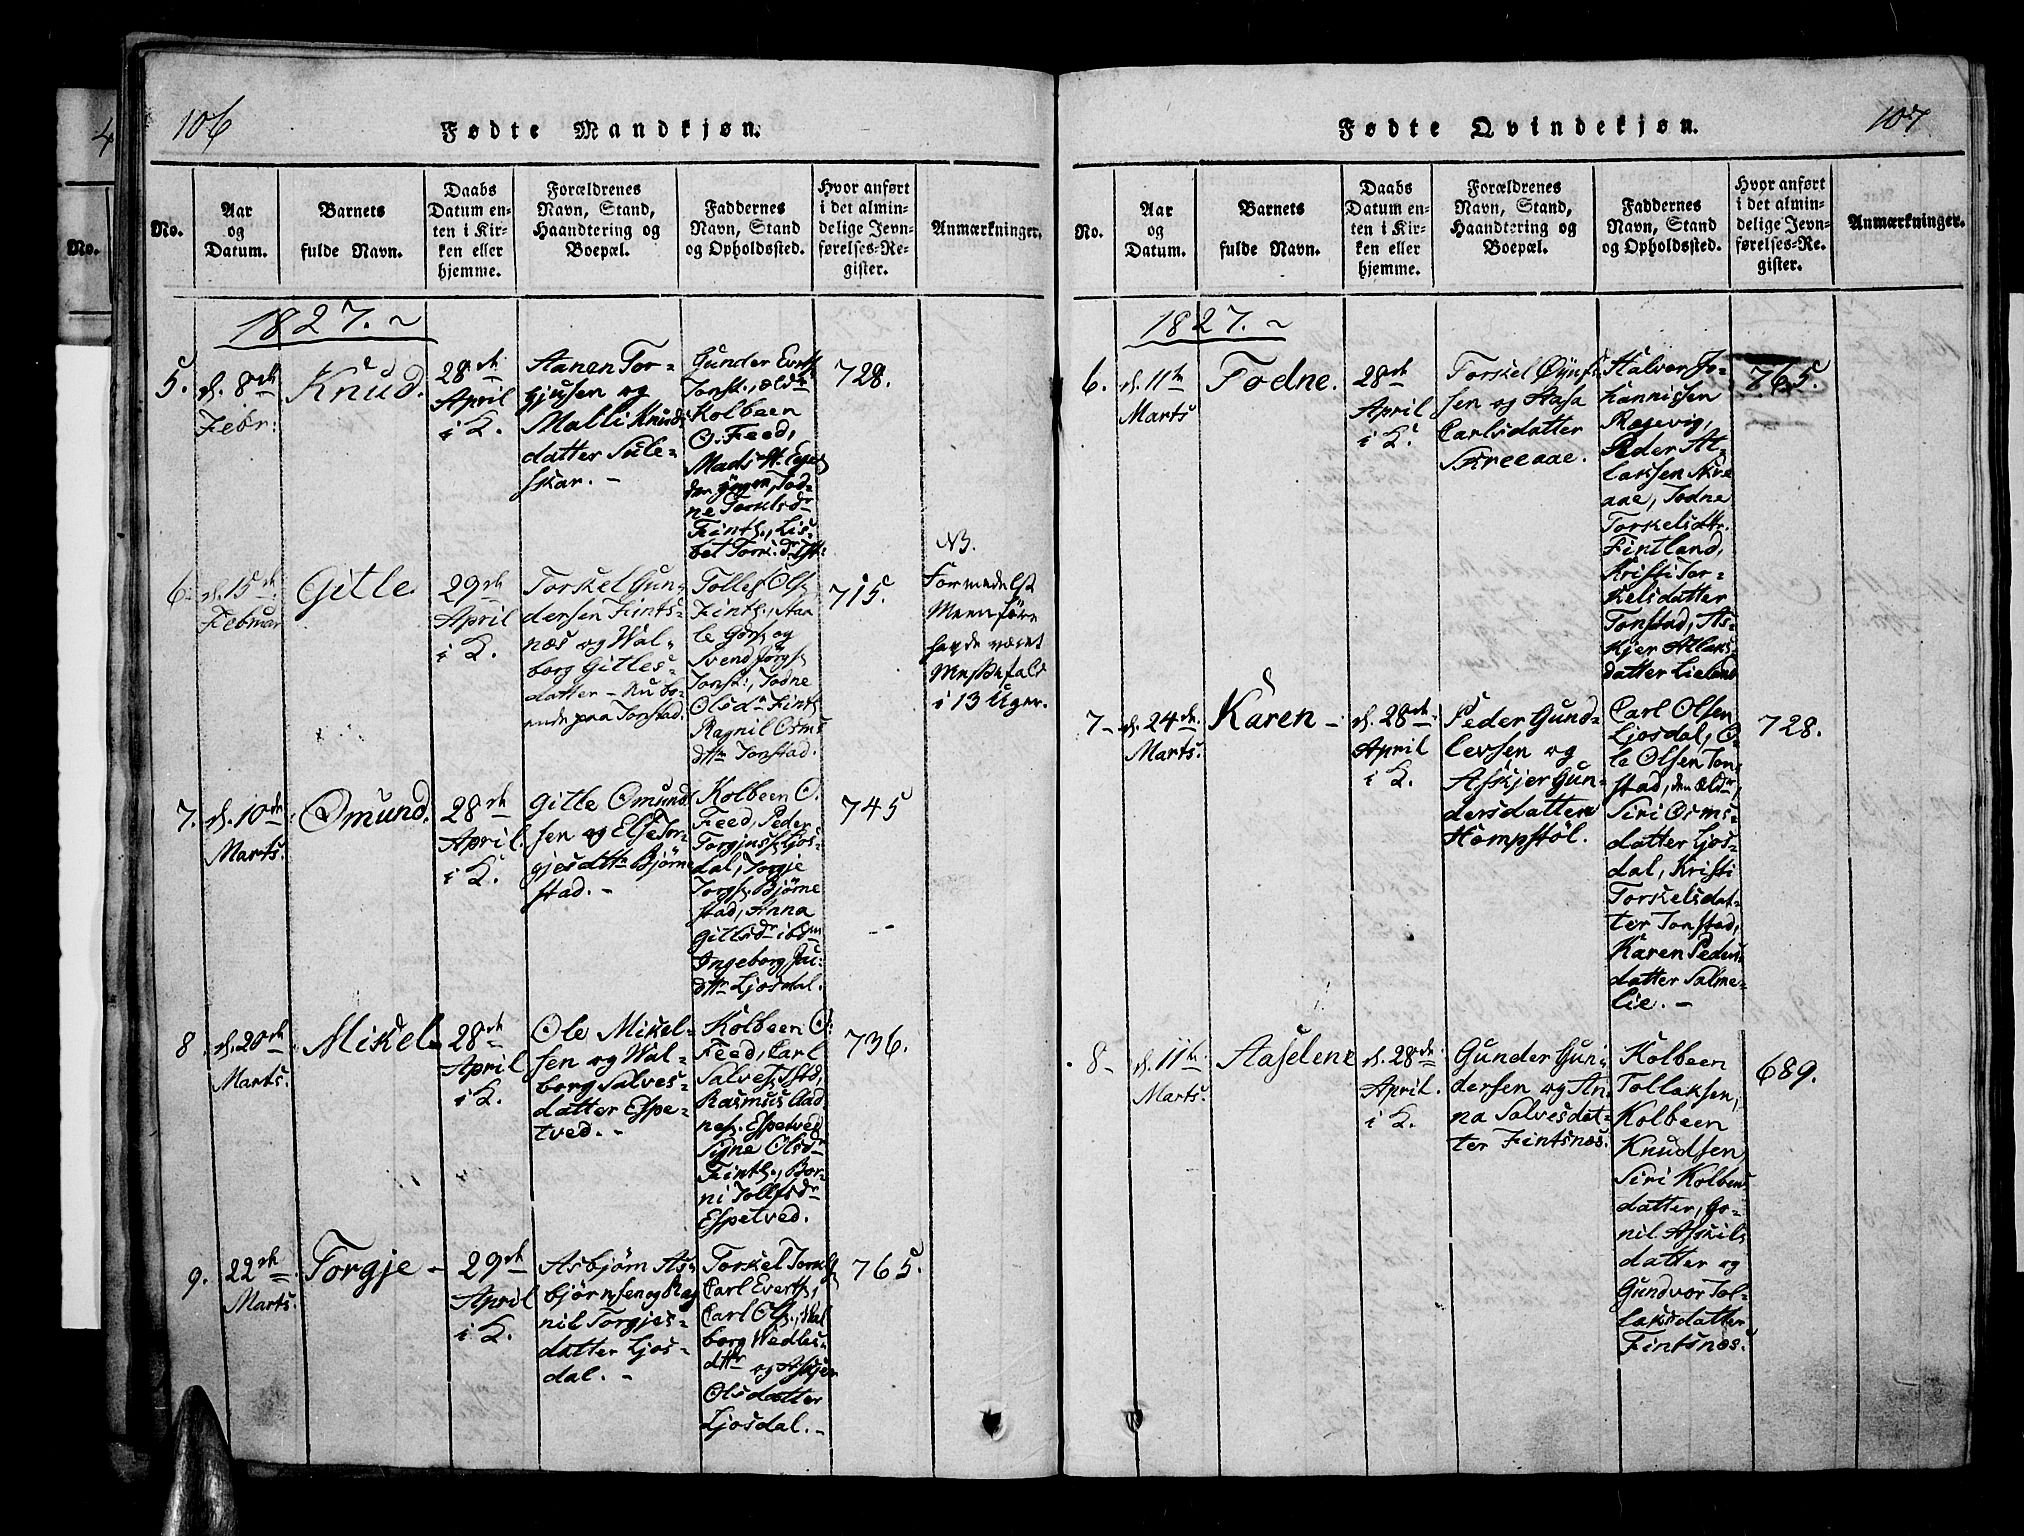 106
Fødte Mandkjøn.
No.
Aar
og
Datum.
Barnets
fulde Navn.
Daabs
Datum en-
ten i Kir-
ken eller
hjemme.
Forældrenes
Navn, Stand,
Haandtering og
Boepæl.
Faddernes
Navn, Stand
og Opholdssted.
Hvor anført
i det almin-
delige Jevn-
førelses-Re-
gister.
Anmærkninger.
1827. ~
5.
d. 8de
Febr:
Knud.
28de
April
i K.
Aanen Tor-
gjusen og
Malli Knuds
datter Sule-
skar. -
Gunder Everts
Tonst., ældr
Kolbeen
O. Feed,
Mads
Tod-
ne Torkelsdr
Fintl., Lis-
bet Tork.dr
728.
6.
d. 15de
Februar
Gitle
29de
April
i K.
Torskel Gun-
dersen Fints-
næs og Wal-
borg Gitles-
datter - nu bo-
ende paa Tonstad.
Tollef Ols.
Fintl., Aaa
le Gors. og
Svend Jörgs.
Tonst., Todne
Olsdr Fintl
Ragnil Osms
dttr Tonstad.
715.
NB.
Formedelst
Meenföre
havde været
Messefald
i 13 Uger.
7.
d. 10de
Marts.
Omund.
28de
April.
i K.
Gitle Omund
sen og Else Tor-
gjesdttr Bjørne
stad. -
Kolbeen O.
Feed, Peder
Torgjuss. Ljos-
dal, Torgje
Torgs. Bjørne
stad, Anna
Gitlsdr ibdm
Ingeborg
dttr Ljosdal.
745
8
d. 20de
Marts.
Mikel
28de
April
i K.
Ole Mikel-
sen og Wal-
borg Salves-
datter Espe-
tved. -
Kolbeen O.
Feed, Carl
Salves. Tstd,
Rasmus Aad
nes. Espetved
Signe Olsdr
Fintl., Bor-
ni Tollfsdr
Espetved.
736.
9.
22de
Marts.
Torgje -
29de
April
i K.
Asbjørn As-
bjørnsen og Rag
nil Torgjes-
datter Ljos-
dal. -
Torskel Torsk
Carl Everts.,
Carl Ols., Wal
borg Wedles-
dttr og Askjer
Olsdatter
Ljosdal. -
765.
107
Fødte Qvindekjøn.
No.
Aar
og
Datum.
Barnets
fulde Navn.
Daabs
Datum en-
ten i Kir-
ken eller
hjemme.
Forældrenes
Navn, Stand,
Haandtering og
Boepæl.
Faddernes
Navn, Stand
og Opholdssted.
Hvor anført
i det almin-
delige Jevn-
førelses-Re-
gister.
Anmærkninger.
1827. ~
6.
d. 11te
Marts
Todne.
28de
April
i K.
Torskel Øyuf-
sen og Aasa
Carlsdatter
Skreeaae.
Halvor Jo-
hannissen
Rægevig,
Peder At-
laksen Skre
aae, Todne
Torskelsdtr.
Fintland,
Kristi Tor-
skelsdatter
Tonstad, As-
kjer Atlaks
datter Lieland
765.
7-
d. 24de
Marts.
Karen -
d. 28de
April
i K.
Peder Gund-
levsen og
Askjer Gun-
dersdatter
Hompstöl.
Carl Olsen
Ljosdal, O-
le Olsen Ton
stad, den ældr,
Siri Osms-
datter Ljos-
dal, Kristi
Torskelsdat-
ter Tonstad,
Karen Peders
datter Salme-
lie. -
728.
8-
d. 11te
Marts.
Aaselene
d. 28de
April.
i K.
Gunder Gun-
dersen og An
na Salvesdat-
ter Fintsnæs.
Kolbeen
Tollaksen,
Kolbeen
Knudsen
Siri Kolbens
datter, Go-
nil Askils
datter og
Gundvor Tol-
laksdatter
Fintsnæs.
689.